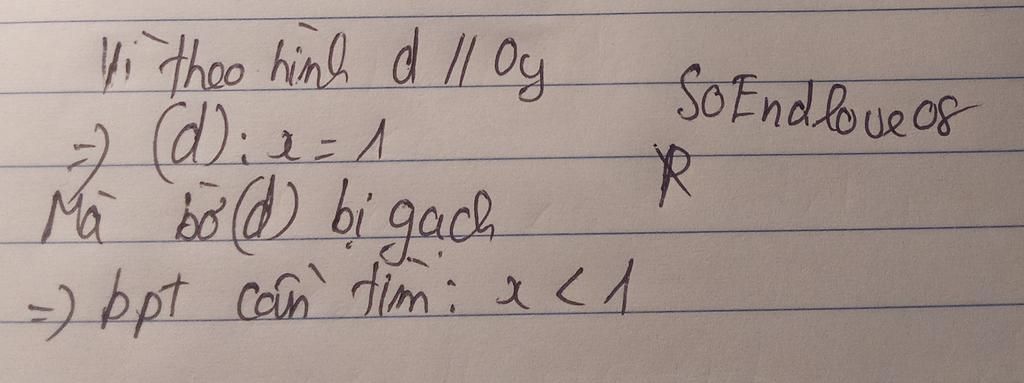 Vì theo hình d // Oy
=> (d): x = 1
Mà bờ (d) bị gạch
=> bpt cần tìm: x < 1
SoEndlove08
R